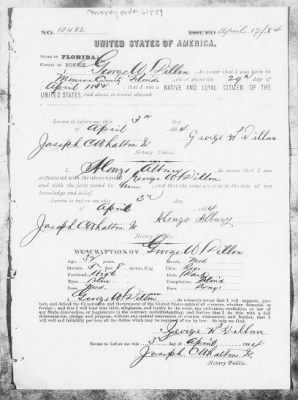 Money order 61859
NO. 10402 ISSUED April 17/84
UNITED STATES OF AMERICA.
STATE OF FLORIDA
COUNTY OF MONROE
I George W. Dillon do swear that I was born in
Monroe County Florida on or about the 29th day of
April 1852 that I am a NATIVE AND LOYAL CITIZEN OF THE
UNITED STATES, and about to travel abroad
Sworn to before me this 3rd day
of April 1884 George W Dillon
Joseph C Whalton Jr
Notary Public.
I Alonzo Albury do swear that I am
acquainted with the above named George W Dillon
and with the facts stated by him and that the same are true to the best of my
knowledge and belief.
Sworn to before me this 3rd day
of April 1884
Alonzo Albury
Joseph C Whalton Jr
Notary Public.
DESCRIPTION OF George W Dillon
Age, 32 years Mouth, Med
Stature, 5 ft 8 inches, Eng Chin,
Forehead, High Hair,
Eyes, Complexion,
Nose, Med. Face,
I George W Dillon do solemnly swear that I will support, pro-
tect, and defend the Constitution and Government of the United States against all enemies, whether domestic or
foreign; and that I will bear true faith, allegiance and loyalty to the same, any ordinance, resolution, or law of
any State, Convention, or Legislature to the contrary notwithstanding; and further, that I do this with a full
determination, pledge, and purpose, without any mental reservation or evasion whatsoever; and further, that I
will well and faithfully perform all the duties which may be required of me by law. So help me God.
George W Dillon
Sworn to before me this 3rd day of April 1884
Joseph C Whalton Jr.
Notary Public.